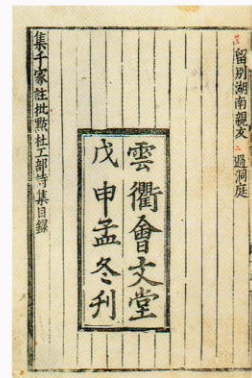 留別湖南親友 過洞庭
雲衢會文堂
戊申孟冬刊
集千家註批點杜工部詩集目錄